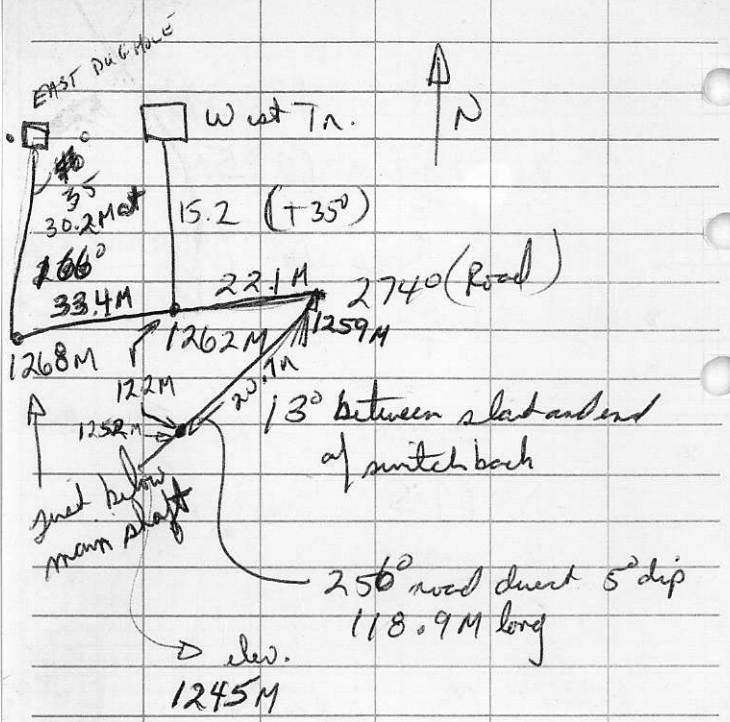 EAST DUG HOLE
West Tn.
N
35
30.2M at
15.2 (+35°)
266°
33.4M
22.1M
274° (Road)
1268M
1262M
1259M
12.2M
20.7M
1252M
13° between start and end
of switchback
just below
main shaft
256° road direct 5° dip
118.9M long
elev.
1245M